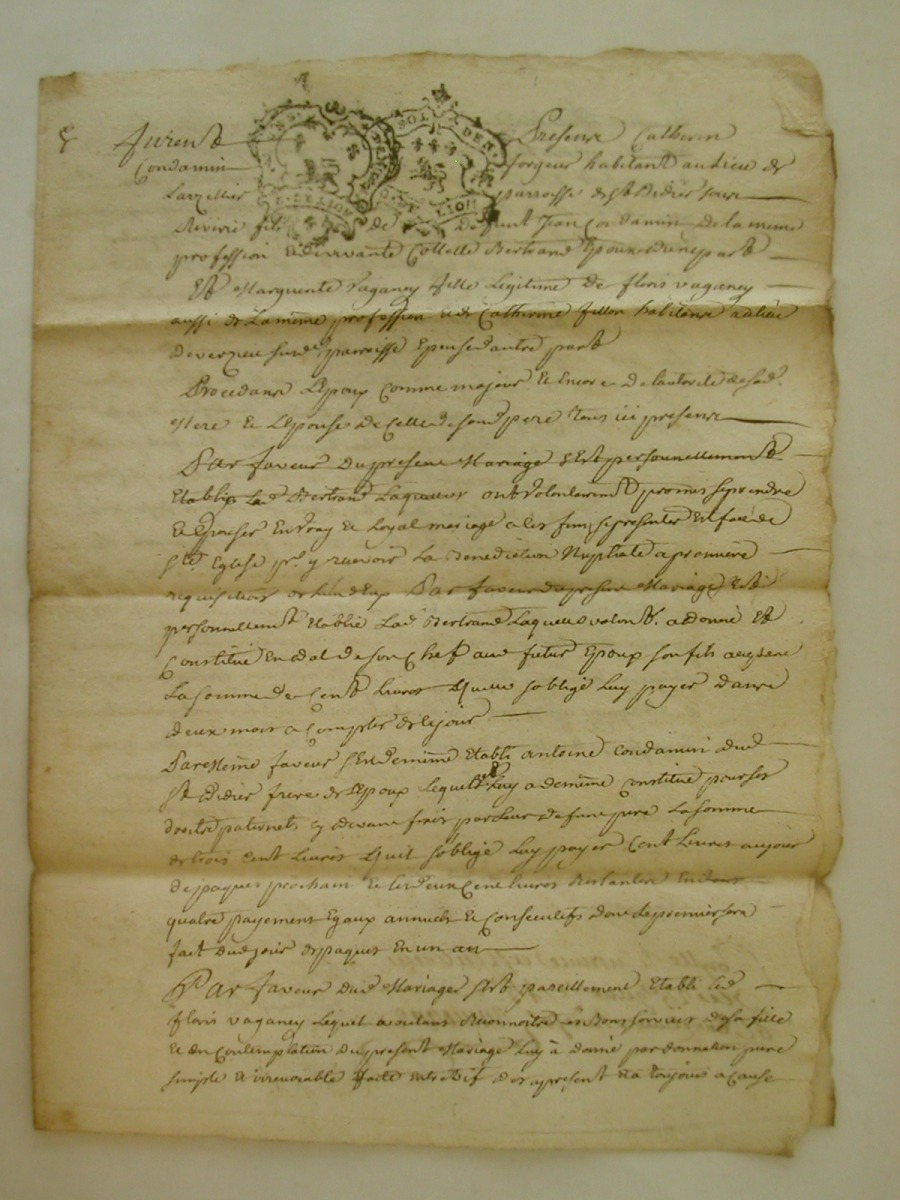 Furent Presents Catherin
Condamin forgeur habitant au lieu de
Larzellier parroisse de St Didier sous
Riverie fils de deffunt Jean Condamin de la meme
profession et de vivante Collette Bertrand Epoux d'une part
Et Marguerite Vaganey fille Legitime de floris vaganey
aussi de La même profession et de Catherine fillon habitans au lieu
de verzieu susd parroisse Epouse d'autre part
Procedans L'Epoux Comme majeur et Encore de l'autorité de sad
Mere et L'Epouse de Celle de sond pere Tous ici presens
Par faveur du present Mariage S'Est personnellement
Etablis Lad Bertrand Laquelle ont volontairement promis se prendre
et Epouser En vray et Loyal mariage a les fins se presenter En face de
Ste Eglise pr y recevoir La Benediction Nuptiale a premiere
requisition de l'un d'Eux Par faveur du present Mariage S'Est
personnellement Etablie Lad Bertrand Laquelle volont. a donné Et
Constitué En dot de son Chef aud futur Epoux son fils
La somme de Cent Livres qu'elle s'oblige Luy payer dans
deux mois a Compter de Ce jour
Pareille faveur s'Est de même Etabli antoine Condamin dud
St Didier frere de L'Epoux Lequel Luy a de même Constitué pour ses
droits paternels par Leur defunt pere La somme
de trois Cent Livres qu'il s'oblige Luy payer Cent Livres au jour
de paques prochain et Les deux Cent Livres Restantes En
quatre payement Egaux annuels et Consecutifs dont Le premier sera
fait dud jour de paques En un an
Par faveur dud Mariage s'Est pareillement Etabli Led
floris vaganey Lequel voulant Reconnoitre Les Bons services de sa fille
Et En Contemplation du present Mariage Luy a donné par donnation pure
simple et irrevocable faite entre vif des apresent et a toujours a Cause